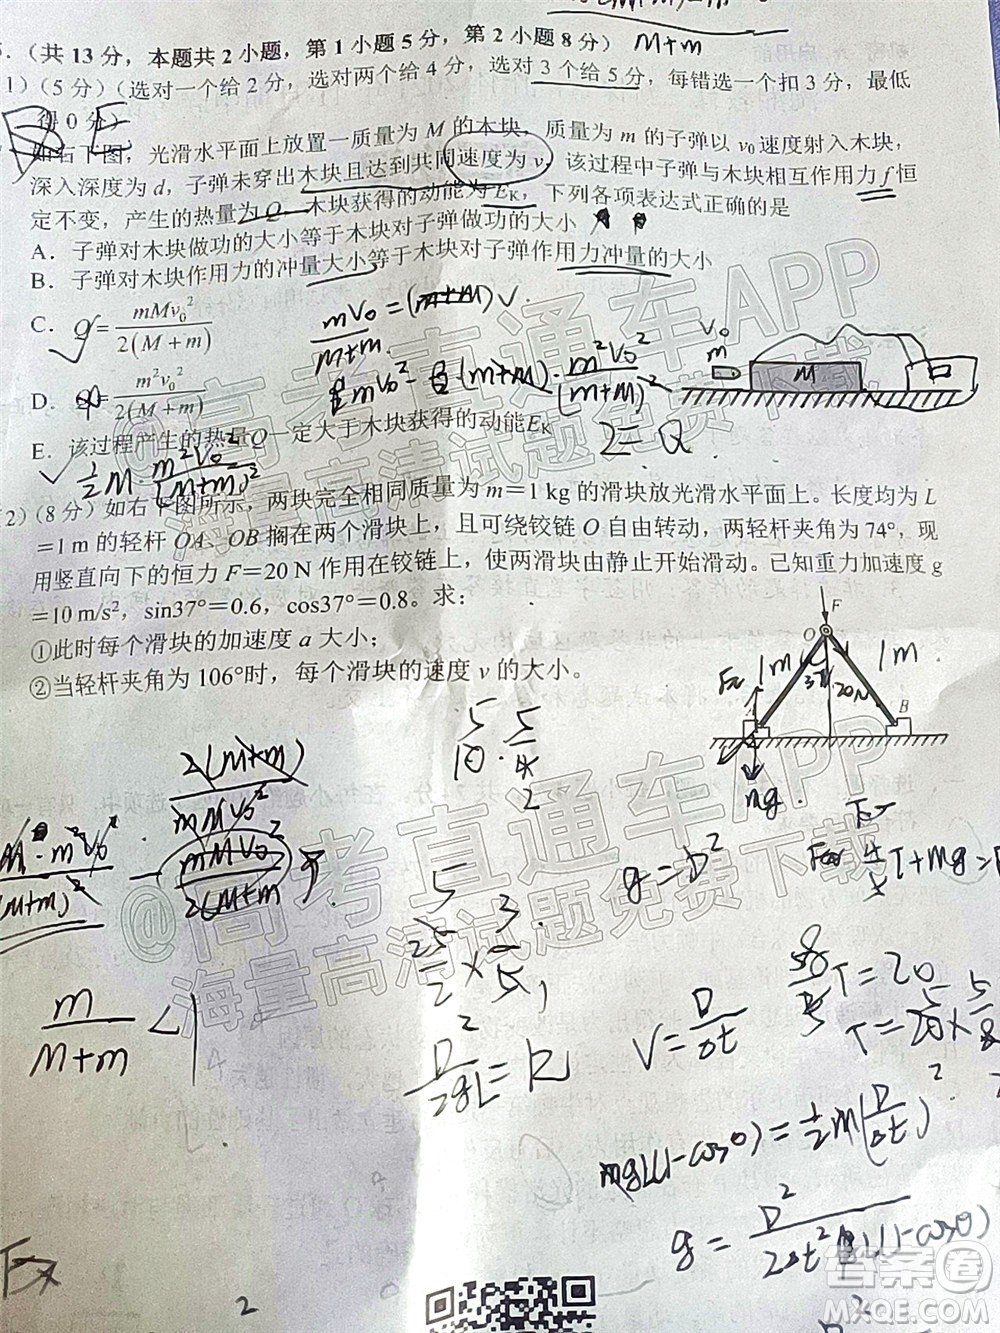 （共 13 分，本题共 2 小题，第 1 小题 5 分，第 2 小题 8 分）
M+m
1）(5 分)（选对一个给 2 分，选对两个给 4 分，选对 3 个给 5 分，每错选一个扣 3 分，最低
得 0 分）
如右下图，光滑水平面上放置一质量为 M 的木块，质量为 m 的子弹以 v₀ 速度射入木块，
深入深度为 d，子弹未穿出木块且达到共同速度为 v，该过程中子弹与木块相互作用力 f 恒
定不变，产生的热量为 Q，木块获得的动能为 Eₖ，下列各项表达式正确的是
A．子弹对木块做功的大小等于木块对子弹做功的大小
B．子弹对木块作用力的冲量大小等于木块对子弹作用力冲量的大小
C．Q=mMv₀²/2(M+m)
mv₀=(m+M)v
mv₀/M+m
D．Q=m²v₀²/2(M+m)
v₀
m
M
E．该过程产生的热量Q一定大于木块获得的动能Eₖ
2=Q
½M·m²v₀²/(M+m)²
2）(8 分) 如右下图所示，两块完全相同质量为 m＝1 kg 的滑块放光滑水平面上。长度均为 L
＝1 m 的轻杆 OA、OB 搁在两个滑块上，且可绕铰链 O 自由转动，两轻杆夹角为 74°，现
用竖直向下的恒力 F＝20 N 作用在铰链上，使两滑块由静止开始滑动。已知重力加速度 g
＝10 m/s²，sin37°＝0.6，cos37°＝0.8。求：
①此时每个滑块的加速度 a 大小；
②当轻杆夹角为 106°时，每个滑块的速度 v 的大小。
F
O
1m
1m
37°
20N
B
mg
2(M+m)/mMv₀²
mMv₀²/2(M+m)
g=D²
m/M+m<1
T=20
V=D/Δt
D/2gL=k
mgL(1-cosθ)=½m(D/Δt)
g=D²/2Δt²L(1-cosθ)
2
@高考直通车APP
海量高清试题免费下载
@高考直通车APP
海量高清试题免费下载
答案圈
MXQE.COM